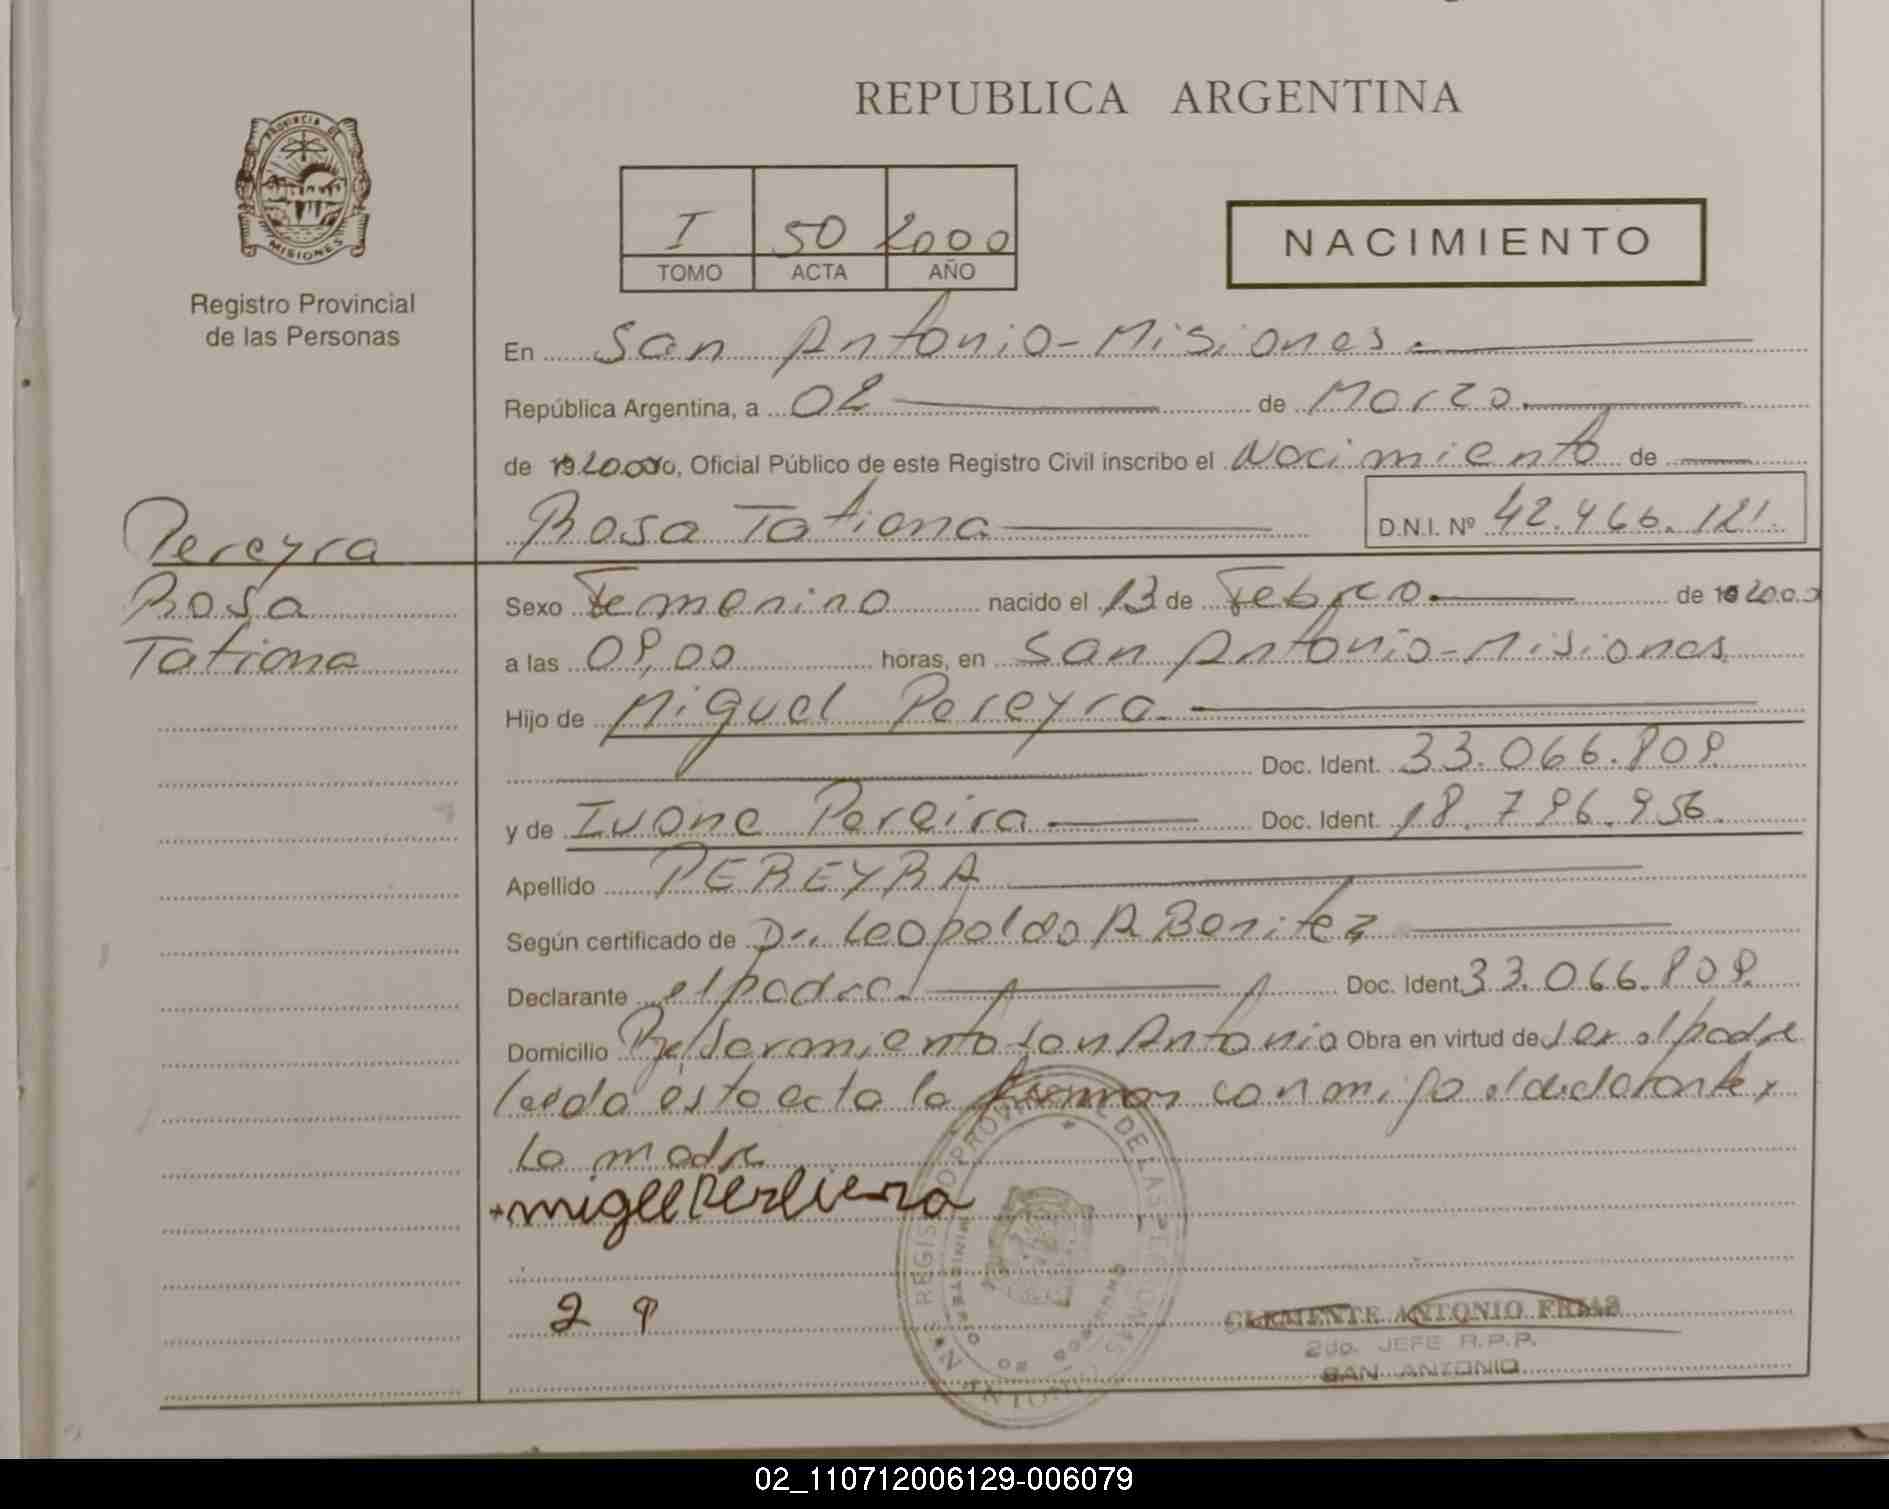 REPUBLICA ARGENTINA
PROVINCIA DE
MISIONES
Registro Provincial
de las Personas
I 50 2000
TOMO ACTA AÑO
NACIMIENTO
En San Antonio - Misiones.
República Argentina, a 02 de Marzo.
de 2000, Oficial Público de este Registro Civil inscribo el Nacimiento de
Rosa Tatiana D.N.I. Nº 42.466.121.
Pereyra
Rosa
Tatiana
Sexo Femenino nacido el 13 de Febrero. de 2000
a las 08,00 horas, en San Antonio - Misiones
Hijo de Miguel Pereyra.
Doc. Ident. 33.066.808.
y de Ivone Pereira Doc. Ident. 18.796.956.
Apellido PEREYRA
Según certificado de Dr. Leopoldo R Benitez
Declarante el padre. Doc. Ident. 33.066.808.
Domicilio San Antonio Obra en virtud de ser el padre
leida esta acta la firman conmigo el declarante y
la madre
CLEMENTE ANTONIO FRIAS
2do. JEFE R.P.P.
SAN ANTONIO
02_110712006129-006079